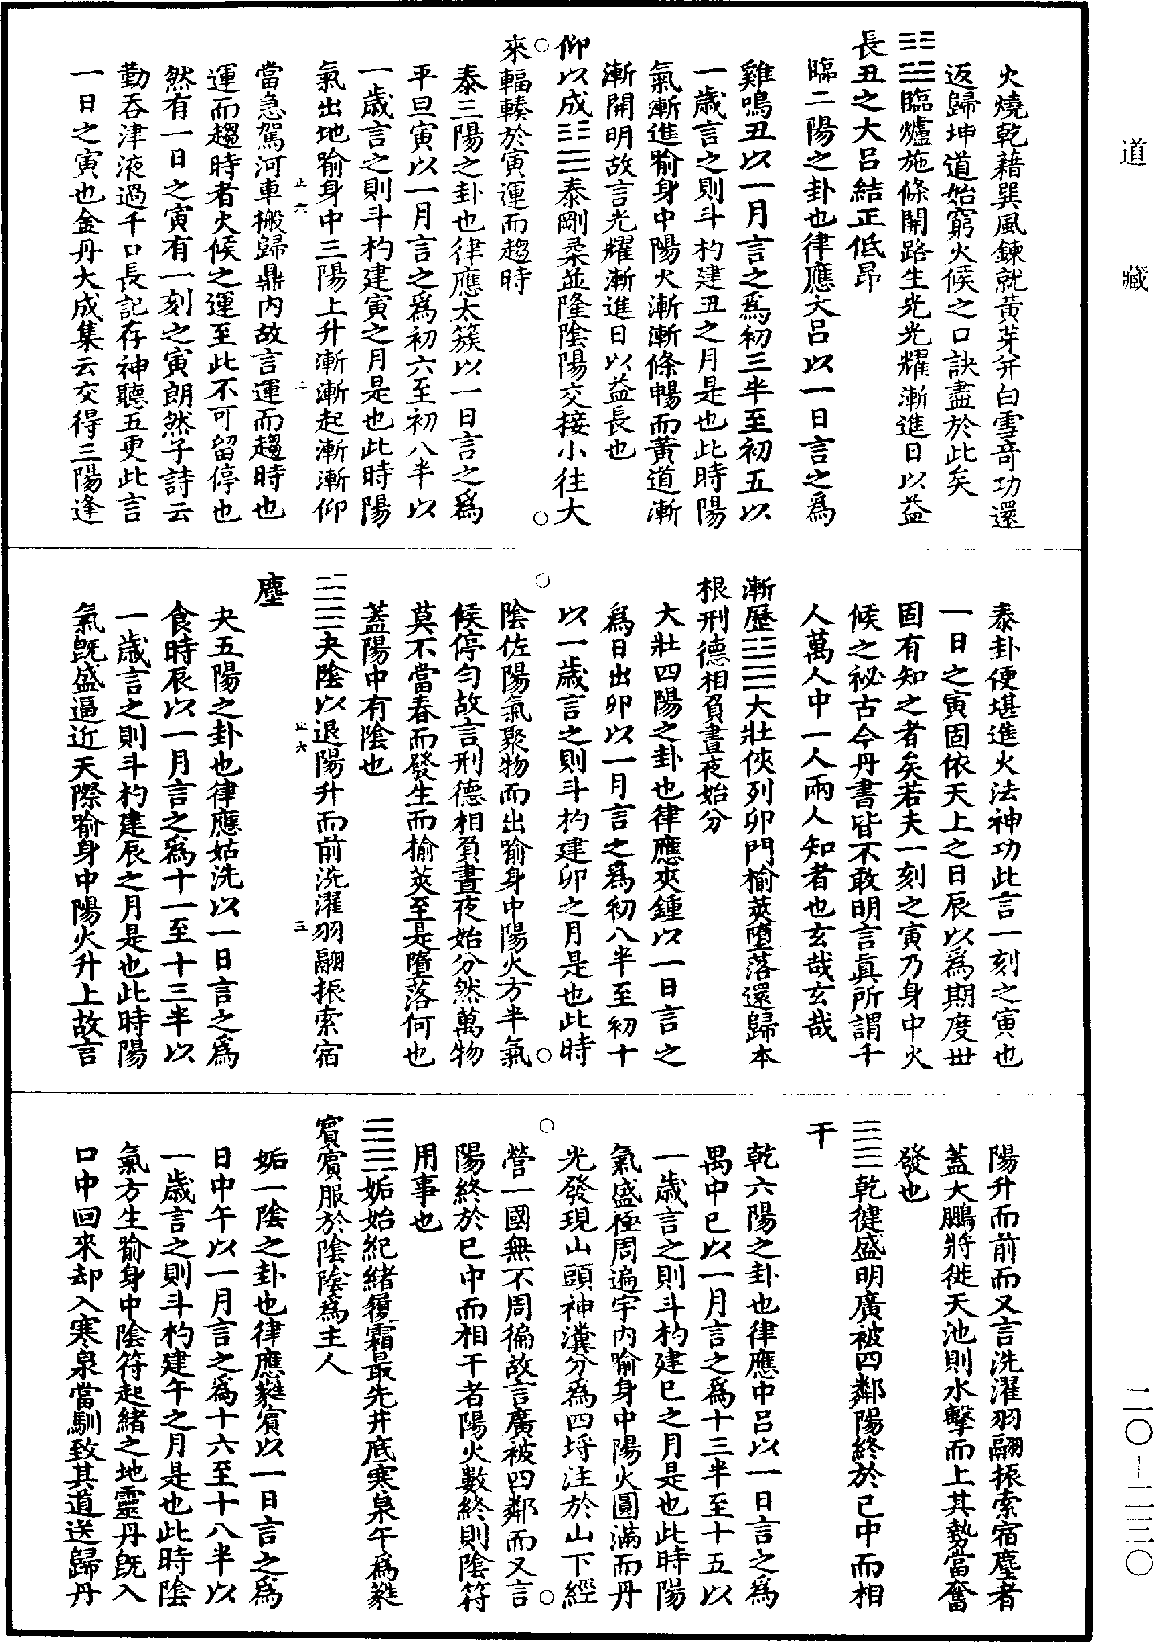 道藏
火燒乾藉巽風鍊就黃芽并白雪奇功還
返歸坤道始窮火候之口訣盡於此矣
䷒臨爐施條開路生光光耀漸進日以益
長丑之大呂結正低昂
臨二陽之卦也律應大呂以一日言之為
雞鳴丑以一月言之為初三半至初五以
一歲言之則斗杓建丑之月是也此時陽
氣漸進喻身中陽火漸漸條暢而黃道漸
漸開明故言光耀漸進日以益長也
仰以成䷊泰剛柔並隆陰陽交接小往大
來輻輳於寅運而趨時
泰三陽之卦也律應太簇以一日言之為
平旦寅以一月言之為初六至初八半以
一歲言之則斗杓建寅之月是也此時陽
氣出地喻身中三陽上升漸漸起漸漸仰
止六 二
當急駕河車搬歸鼎內故言運而趨時也
運而趨時者火候之運至此不可留停也
然有一日之寅有一刻之寅朗然子詩云
勤吞津液過千口長記存神聽五更此言
一日之寅也金丹大成集云交得三陽逢
泰卦便堪進火法神功此言一刻之寅也
一日之寅固依天上之日辰以為期度世
固有知之者矣若夫一刻之寅乃身中火
候之祕古今丹書皆不敢明言真所謂千
人萬人中一人兩人知者也玄哉玄哉
漸歷䷡大壯俠列卯門榆莢墮落還歸本
根刑德相負晝夜始分
大壯四陽之卦也律應夾鍾以一日言之
為日出卯以一月言之為初八半至初十
以一歲言之則斗杓建卯之月是也此時
陰佐陽氣聚物而出喻身中陽火方半氣
候停勻故言刑德相負晝夜始分然萬物
莫不當春而發生而榆莢至是墮落何也
蓋陽中有陰也
䷪夬陰以退陽升而前洗濯羽翮振索宿
止六 三
塵
夬五陽之卦也律應姑洗以一日言之為
食時辰以一月言之為十一至十三半以
一歲言之則斗杓建辰之月是也此時陽
氣既盛逼近天際喻身中陽火升上故言
陽升而前而又言洗濯羽翮振索宿塵者
蓋大鵬將徙天池則水擊而上其勢當奮
發也
䷀乾健盛明廣被四鄰陽終於巳中而相
干
乾六陽之卦也律應中呂以一日言之為
禺中巳以一月言之為十三半至十五以
一歲言之則斗杓建巳之月是也此時陽
氣盛極周遍宇內喻身中陽火圓滿而丹
光發現山頭神瀵分為四埒注於山下經
營一國無不周徧故言廣被四鄰而又言
陽終於巳中而相干者陽火數終則陰符
用事也
䷫姤始紀緒履霜最先井底寒泉午為蕤
賓賓服於陰陰為主人
姤一陰之卦也律應蕤賓以一日言之為
日中午以一月言之為十六至十八半以
一歲言之則斗杓建午之月是也此時陰
氣方生喻身中陰符起緒之地靈丹既入
口中回來却入寒泉當馴致其道送歸丹
二〇-二三〇